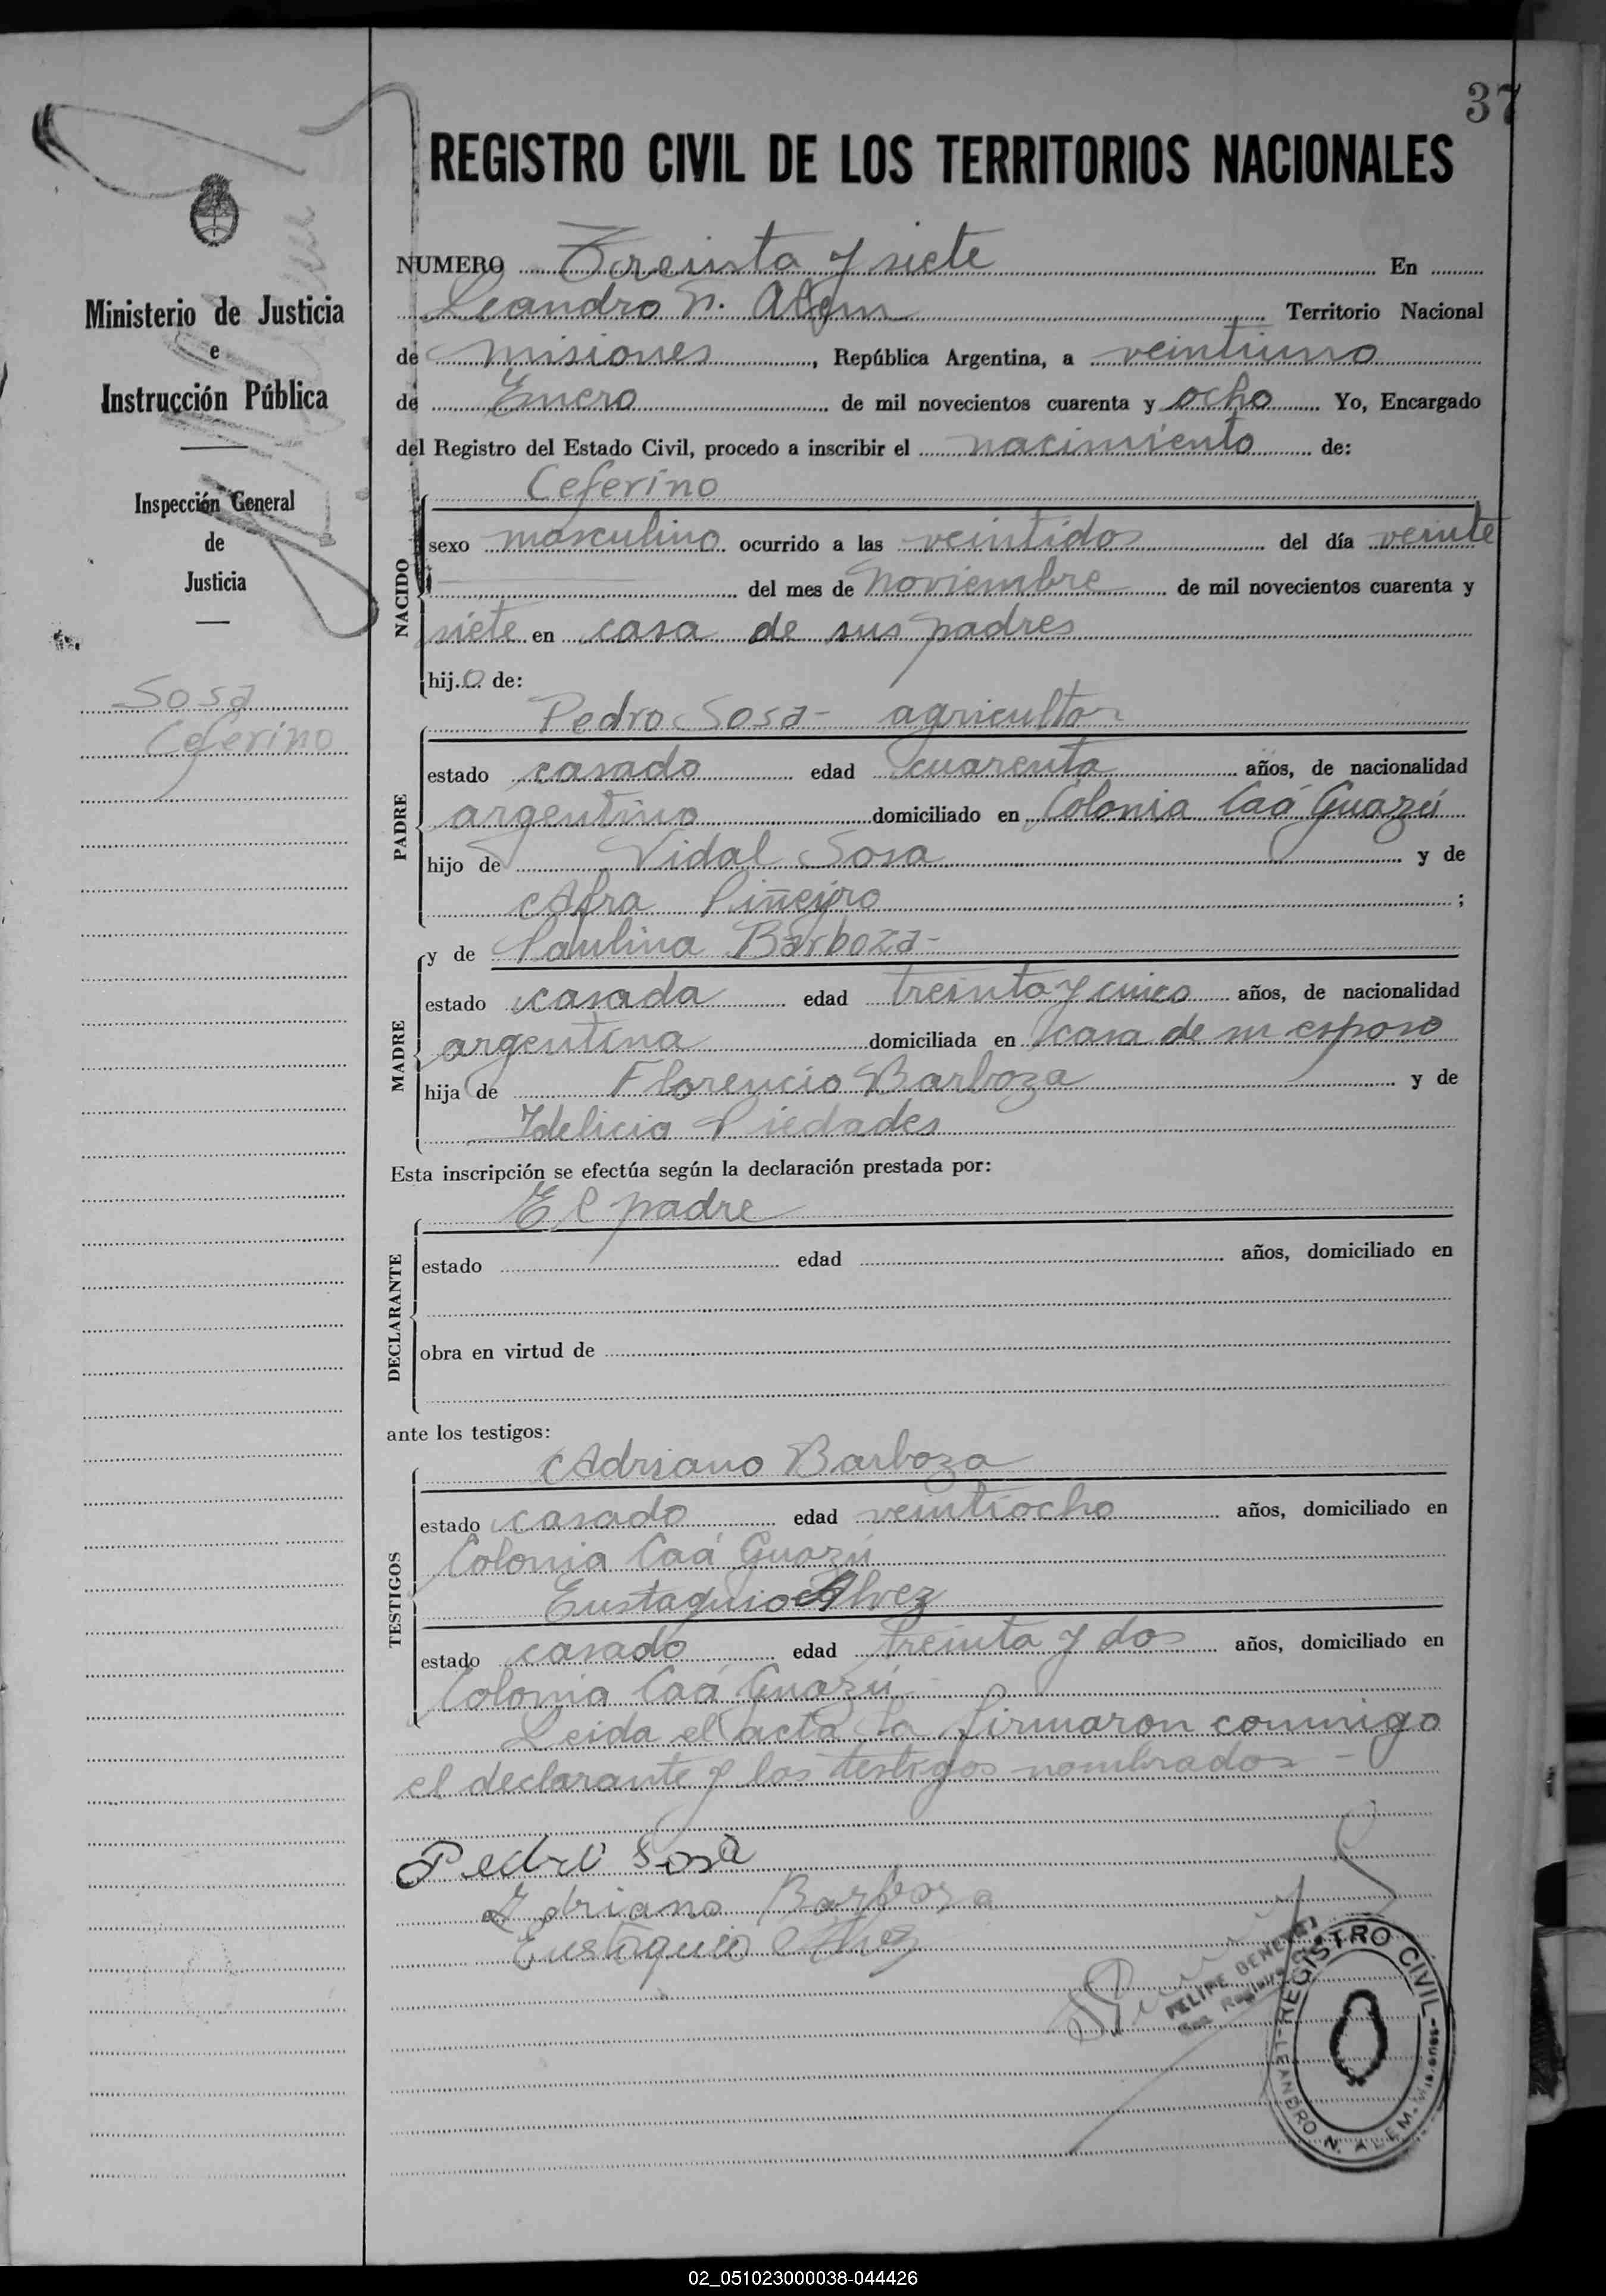 37
REGISTRO CIVIL DE LOS TERRITORIOS NACIONALES
Ministerio de Justicia
e
Instrucción Pública
Inspección General
de
Justicia
Sosa
Ceferino
NUMERO Treinta y siete En
Leandro N. Alem Territorio Nacional
de misiones, República Argentina, a veintiuno
de Enero de mil novecientos cuarenta y ocho Yo, Encargado
del Registro del Estado Civil, procedo a inscribir el nacimiento de:
Ceferino
NACIDO
sexo masculino ocurrido a las veintidos del día veinte
del mes de Noviembre de mil novecientos cuarenta y
siete en casa de sus padres
hijo de:
Pedro Sosa - agricultor
PADRE
estado casado edad cuarenta años, de nacionalidad
argentino domiciliado en Colonia Caá Guazú
hijo de Vidal Sosa y de
Afra Piñeyro ;
y de Paulina Barboza -
MADRE
estado casada edad treinta y cinco años, de nacionalidad
argentina domiciliada en casa de su esposo
hija de Florencio Barboza y de
Idelicia Piedades
Esta inscripción se efectúa según la declaración prestada por:
El padre
DECLARANTE
estado edad años, domiciliado en
obra en virtud de
ante los testigos:
Adriano Barboza
TESTIGOS
estado casado edad veintiocho años, domiciliado en
Colonia Caá Guazú
Eustaquio Alvez
estado casado edad treinta y dos años, domiciliado en
Colonia Caá Guazú
Leida el acta la firmaron conmigo
el declarante y los testigos nombrados -
Pedro Sosa
Adriano Barboza
Eustaquio Alvez
FELIPE
REGISTRO CIVIL
LEANDRO N. ALEM - Misiones -
02_051023000038-044426